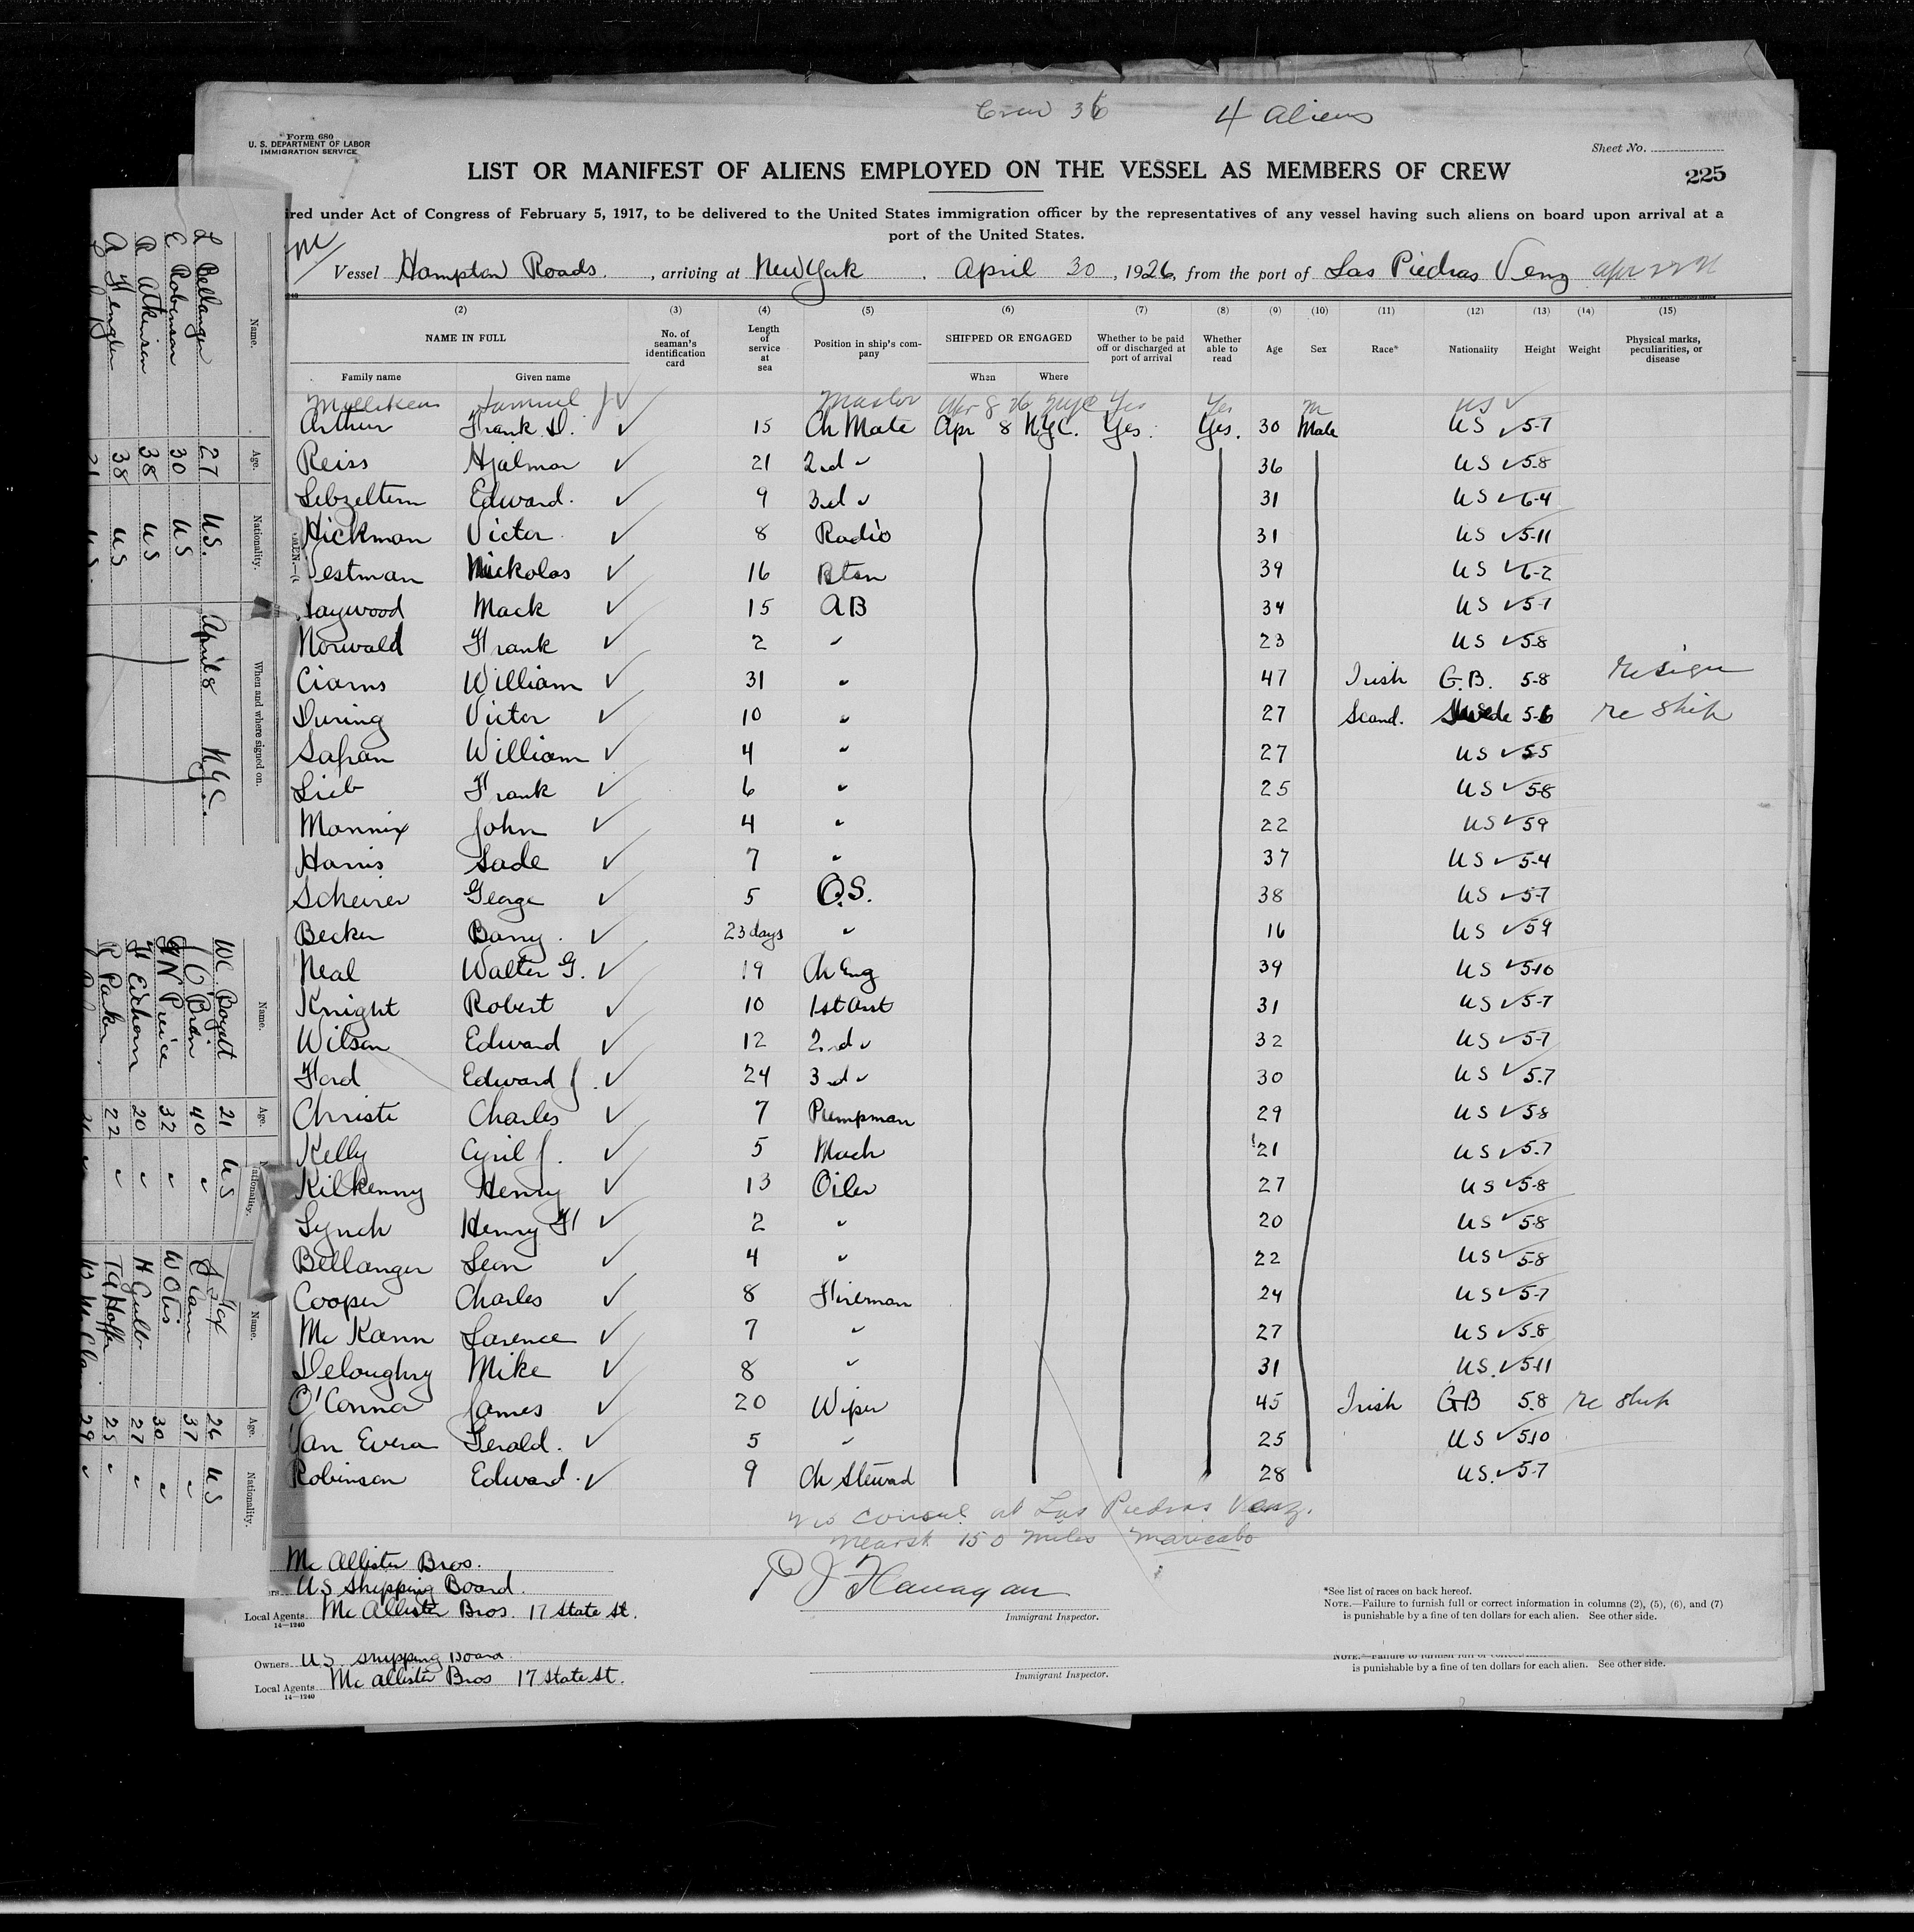 Crew 36 4 Aliens
Form 680
U. S. DEPARTMENT OF LABOR
IMMIGRATION SERVICE
Sheet No.
LIST OR MANIFEST OF ALIENS EMPLOYED ON THE VESSEL AS MEMBERS OF CREW
225
ired under Act of Congress of February 5, 1917, to be delivered to the United States immigration officer by the representatives of any vessel having such aliens on board upon arrival at a
port of the United States.
Vessel Hampton Roads, arriving at New York April 30, 1926, from the port of Las Piedras Venz
(2) (3) (4) (5) (6) (7) (8) (9) (10) (11) (12) (13) (14) (15)
NAME IN FULL No. of seaman's identification card Length of service at sea Position in ship's company SHIPPED OR ENGAGED Whether to be paid off or discharged at port of arrival Whether able to read Age Sex Race* Nationality Height Weight Physical marks, peculiarities, or disease
Family name Given name When Where
Milliken Samuel J ✓ Master Apr 8 26 NYC Yes Yes m US ✓
Arthur Frank D. ✓ 15 Ch Mate Apr 8 N.Y.C. Yes. Yes. 30 Male US ✓ 5-7
Reiss Hjalmar ✓ 21 2nd " 36 US ✓ 5-8
Lebzeltern Edward. ✓ 9 3rd " 31 US ✓ 6-4
Hickman Victor ✓ 8 Radio 31 US ✓ 5-11
estman Nickolas ✓ 16 Btsn 39 US ✓ 6-2
Haywood Mack ✓ 15 AB 34 US ✓ 5-7
Norwald Frank ✓ 2 " 23 US ✓ 5-8
Ciarns William ✓ 31 " 47 Irish G.B. 5-8 resign
During Victor ✓ 10 " 27 Scand. Swede 5-6 re ship
Safran William ✓ 4 " 27 US ✓ 5-5
Lieb Frank ✓ 6 " 25 US ✓ 5-8
Mannix John ✓ 4 " 22 US ✓ 5-9
Harris Sade ✓ 7 " 37 US ✓ 5-4
Scheirer George ✓ 5 O.S. 38 US ✓ 5-7
Becker Barry. ✓ 23 days " 16 US ✓ 5-9
Neal Walter G. ✓ 19 Ch Eng 39 US ✓ 5-10
Knight Robert ✓ 10 1st Asst 31 US ✓ 5-7
Wilson Edward ✓ 12 2nd " 32 US ✓ 5-7
Ford Edward J. ✓ 24 3rd " 30 US ✓ 5-7
Christi Charles ✓ 7 Pumpman 29 US ✓ 5-8
Kelly Cyril J. ✓ 5 Mach 21 US ✓ 5-7
Kilkenny Henry ✓ 13 Oiler 27 US ✓ 5-8
Lynch Henry H ✓ 2 " 20 US ✓ 5-8
Bellanger Leon ✓ 4 " 22 US ✓ 5-8
Cooper Charles ✓ 8 Fireman 24 US ✓ 5-7
Mc Kann Larence ✓ 7 " 27 US ✓ 5-8
Deloughry Mike ✓ 8 " 31 US. ✓ 5-11
O'Connor James ✓ 20 Wiper 45 Irish GB 5-8 re ship
Van Evera Gerald. ✓ 5 " 25 US ✓ 5-10
Robinson Edward. ✓ 9 Ch Steward 28 US. ✓ 5-7
no consul at Las Piedras Venz.
150 miles Maricabo
Mc Allister Bros.
US Shipping Board.
Local Agents Mc Allister Bros. 17 State St.
14—1240
P J Flanagan
Immigrant Inspector.
*See list of races on back hereof.
NOTE.—Failure to furnish full or correct information in columns (2), (5), (6), and (7)
is punishable by a fine of ten dollars for each alien. See other side.
Owners US. Shipping Board.
Local Agents Mc Allister Bros 17 State St.
14—1240
Immigrant Inspector.
is punishable by a fine of ten dollars for each alien. See other side.
Name. Age. Nationality. When and where signed on.
L Bellanger 27 U.S. April 8 N.Y.C.
E Robinson 30 US
R Atkinson 38 US
A Hengler 38 US
Name. Age. Nationality.
WC. Boyet 21 US
J O'Brien 40 "
32 "
F Eichorn 20 "
R Parker 22 "
Name. Age. Nationality.
26 US
37 "
W Otis 30 "
H Gull 27 "
25 "
29 "